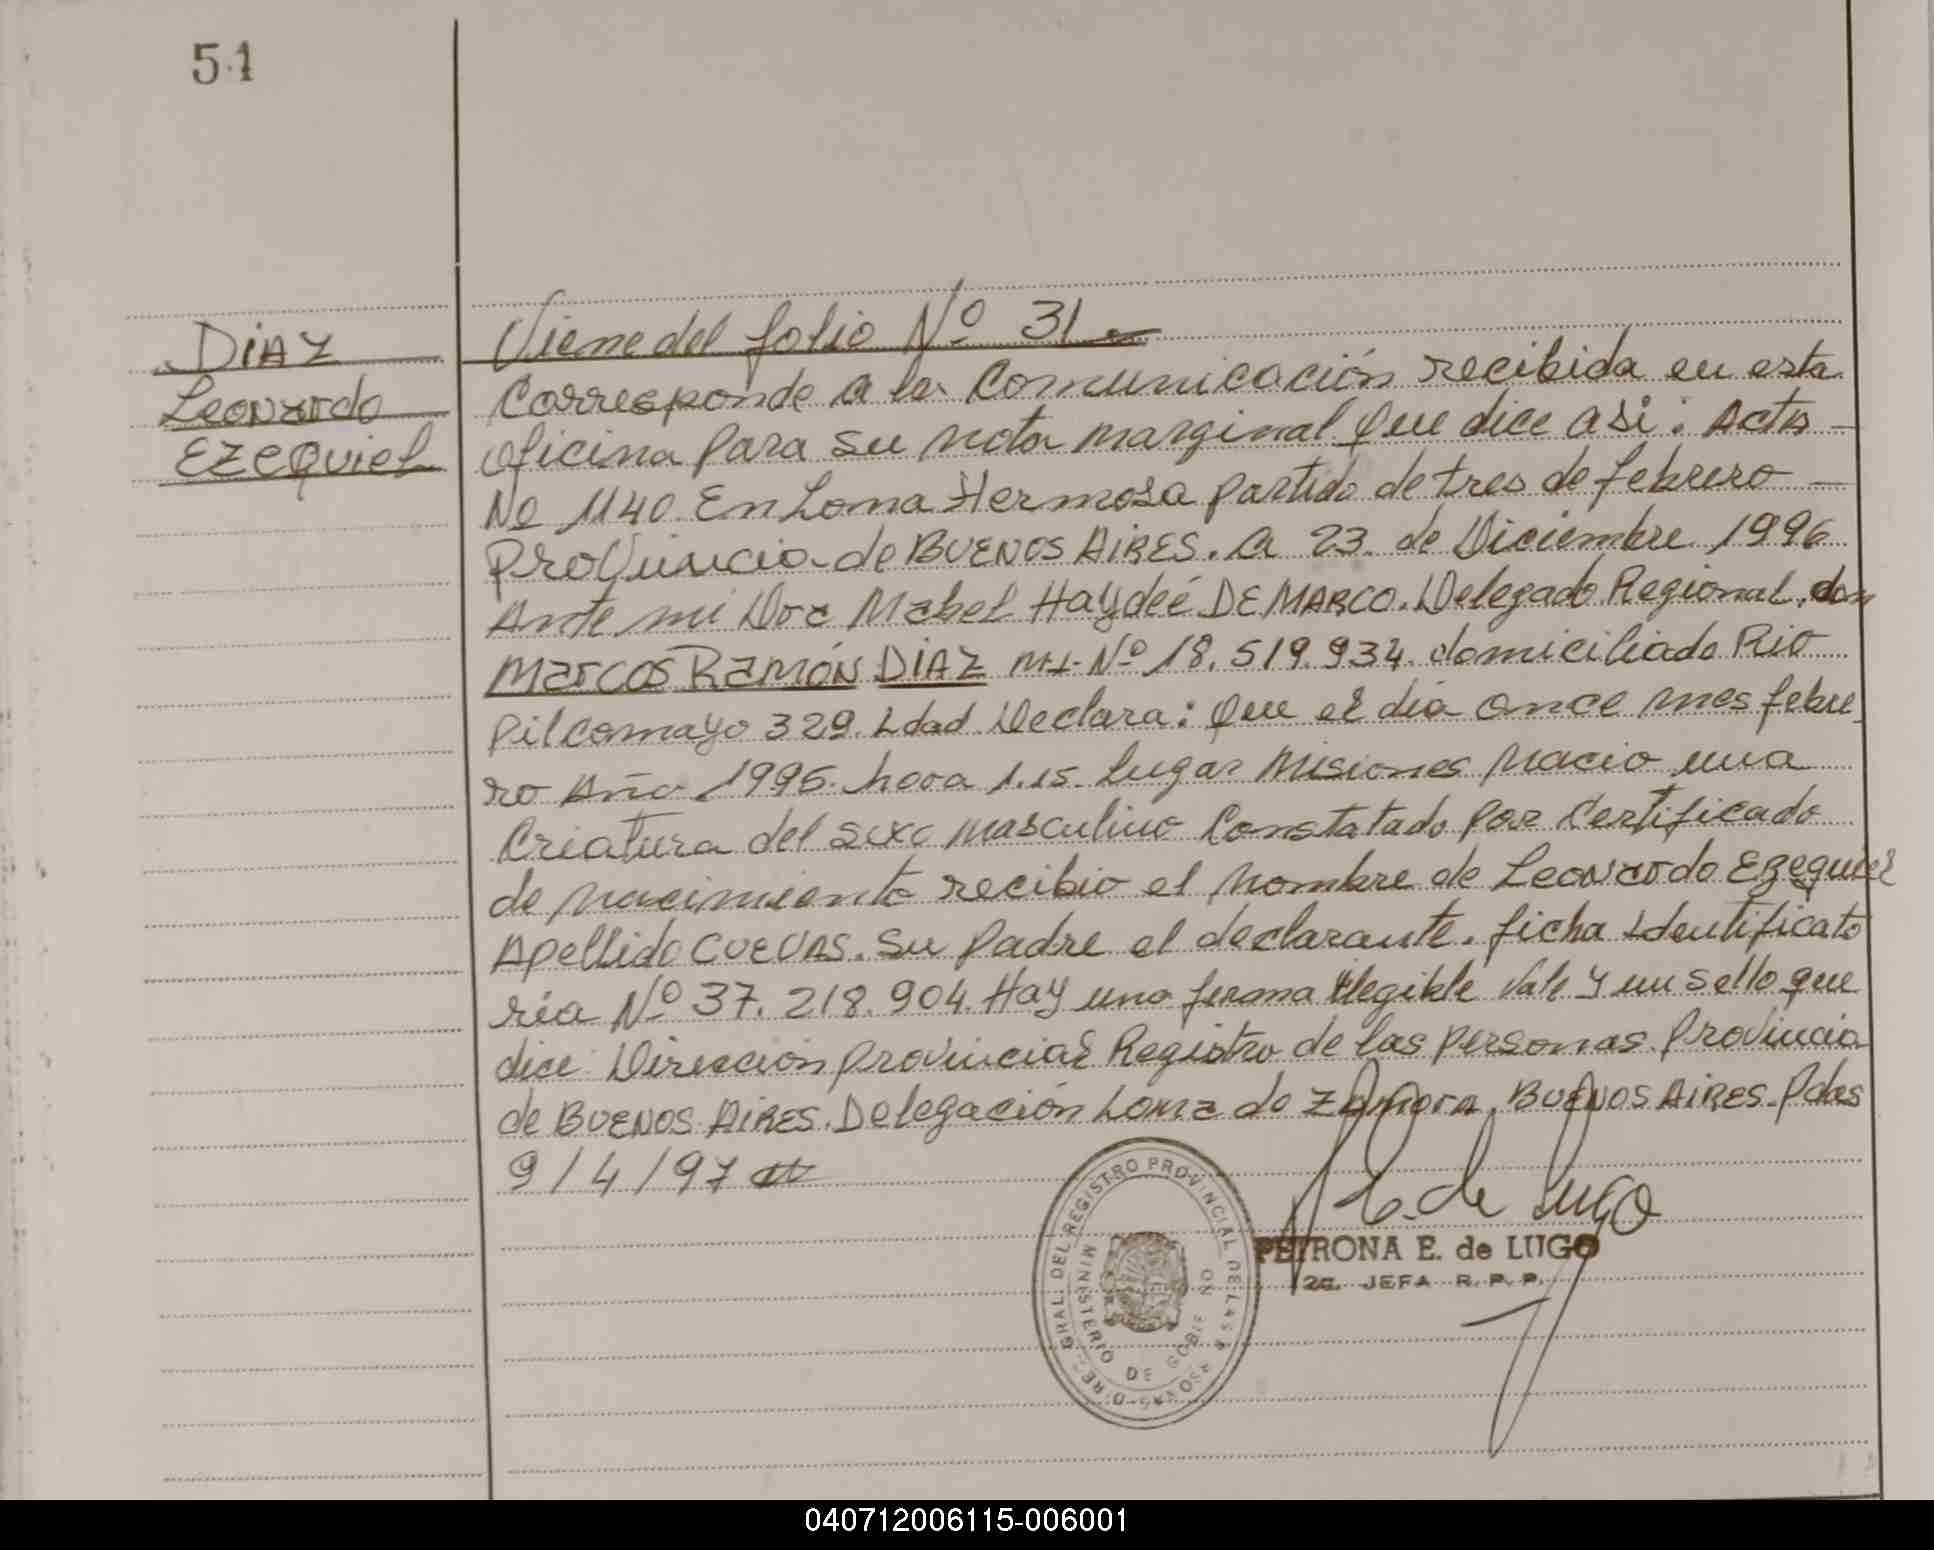 51
DiAZ
Leonardo
EZEQUiEL
Viene del folio Nº 31
Corresponde a la Comunicación recibida en esta
oficina para su nota marginal que dice asi: Acta
No 1140. En Loma Hermosa partido de tres de febrero
Provincia de BUENOS AiRES. a 23. de Diciembre 1996
Ante mi Dra Mabel Haydeé DE MARCO. Delegado Regional, don
MarCOS RAMÓN DIAZ MI. Nº 18.519.934. domiciliado Rio
Pilcomayo 329. Edad. Declara: que el dia once mes febre
ro Año 1995. hora 1.15. lugar Misiones Nacio una
Criatura del sexo masculino Constatado por Certificado
de Nacimiento recibio el Nombre de Leonardo Ezequiel
Apellido CUEVAS. su padre el declarante. ficha Identificato
ria Nº 37.218.904. Hay una firma Ilegible Vale y un sello que
dice: Dirección provincial Registro de las Personas. Provincia
de BUENOS AiRES. Delegación Loma de Zamora, BUENOS AiRES. Pdas
9/4/97
E. de Lugo
PETRONA E. de LUGO
2a. JEFA R. P. P.
DIREC. GRAL. DEL REGISTRO PROVINCIAL DE LAS PERSONAS
MINISTERIO DE GOBIERNO
040712006115-006001